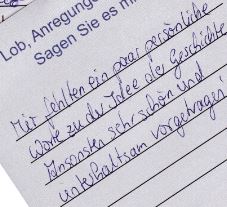 Lob, Anregunge
Sagen Sie es mi
Mir fehlten ein paar persönliche
Worte zu der Idee der Geschichte
Ansonsten sehr schön und
unterhaltsam vorgetragen